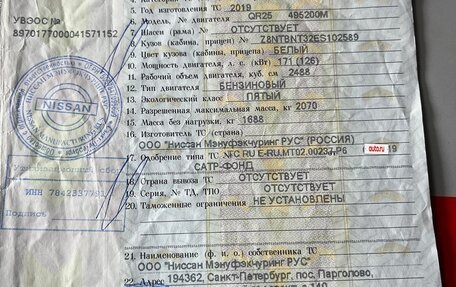 УВЭОС №
8970177000041571152
4. Год изготовления ТС 2019
6. Модель, № двигателя QR25 495200M
7. Шасси (рама) № ОТСУТСТВУЕТ
8. Кузов (кабина, прицеп) № Z8NTBNT32ES102589
9. Цвет кузова (кабины, прицепа) БЕЛЫЙ
10. Мощность двигателя, л.с. (кВт) 171 (126)
11. Рабочий объем двигателя, куб. см 2488
12. Тип двигателя БЕНЗИНОВЫЙ
13. Экологический класс ПЯТЫЙ
14. Разрешенная максимальная масса, кг 2070
15. Масса без нагрузки, кг 1688
16. Изготовитель ТС (страна)
ООО "Ниссан Мэнуфэкчуринг РУС" (РОССИЯ)
17. Одобрение типа ТС № ТС RU E-RU.MT02.00237.Р6 19
auto.ru
САТР-ФОНД
18. Страна вывоза ТС ОТСУТСТВУЕТ
19. Серия, № ТД, ТПО ОТСУТСТВУЕТ
20. Таможенные ограничения НЕ УСТАНОВЛЕНЫ
NISSAN
ИНН
Подпись
21. Наименование (ф. и. о.) собственника ТС
ООО "Ниссан Мэнуфэкчуринг РУС"
22. Адрес 194362, Санкт-Петербург, пос. Парголово,